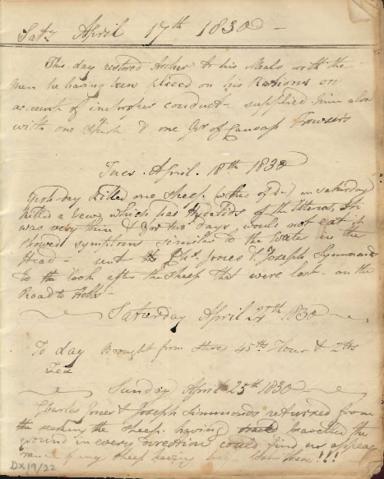 Saty April 17th 1830
This day restored Archer to his Meals with the
Men he having been placed on his Rations on
account of improper conduct - supplied him also
with one Shirt & one Pr of Canvass Trowsers
Tues. April. 18th 1830
Yesterday killed one Sheep on Saturday
killed a Ewe, which had Hydatids of the Uterus, it
was very thin & for two days would not eat it
showed symptoms similar to the Water in the
Head - sent Chs Jones & Joseph Simmonds
to look after the Sheep that were lost on the
Road to
Saturday April 24th 1830
To day Brought from Store 45 lbs Flour & 2 lbs
Tea
Sunday April 25th 1830
Charles Jones & Joseph Simmonds returned from
the seeking the Sheep. having travelled the
ground in every direction could find no appea
rance of any Sheep having been there!!!
DX19/22